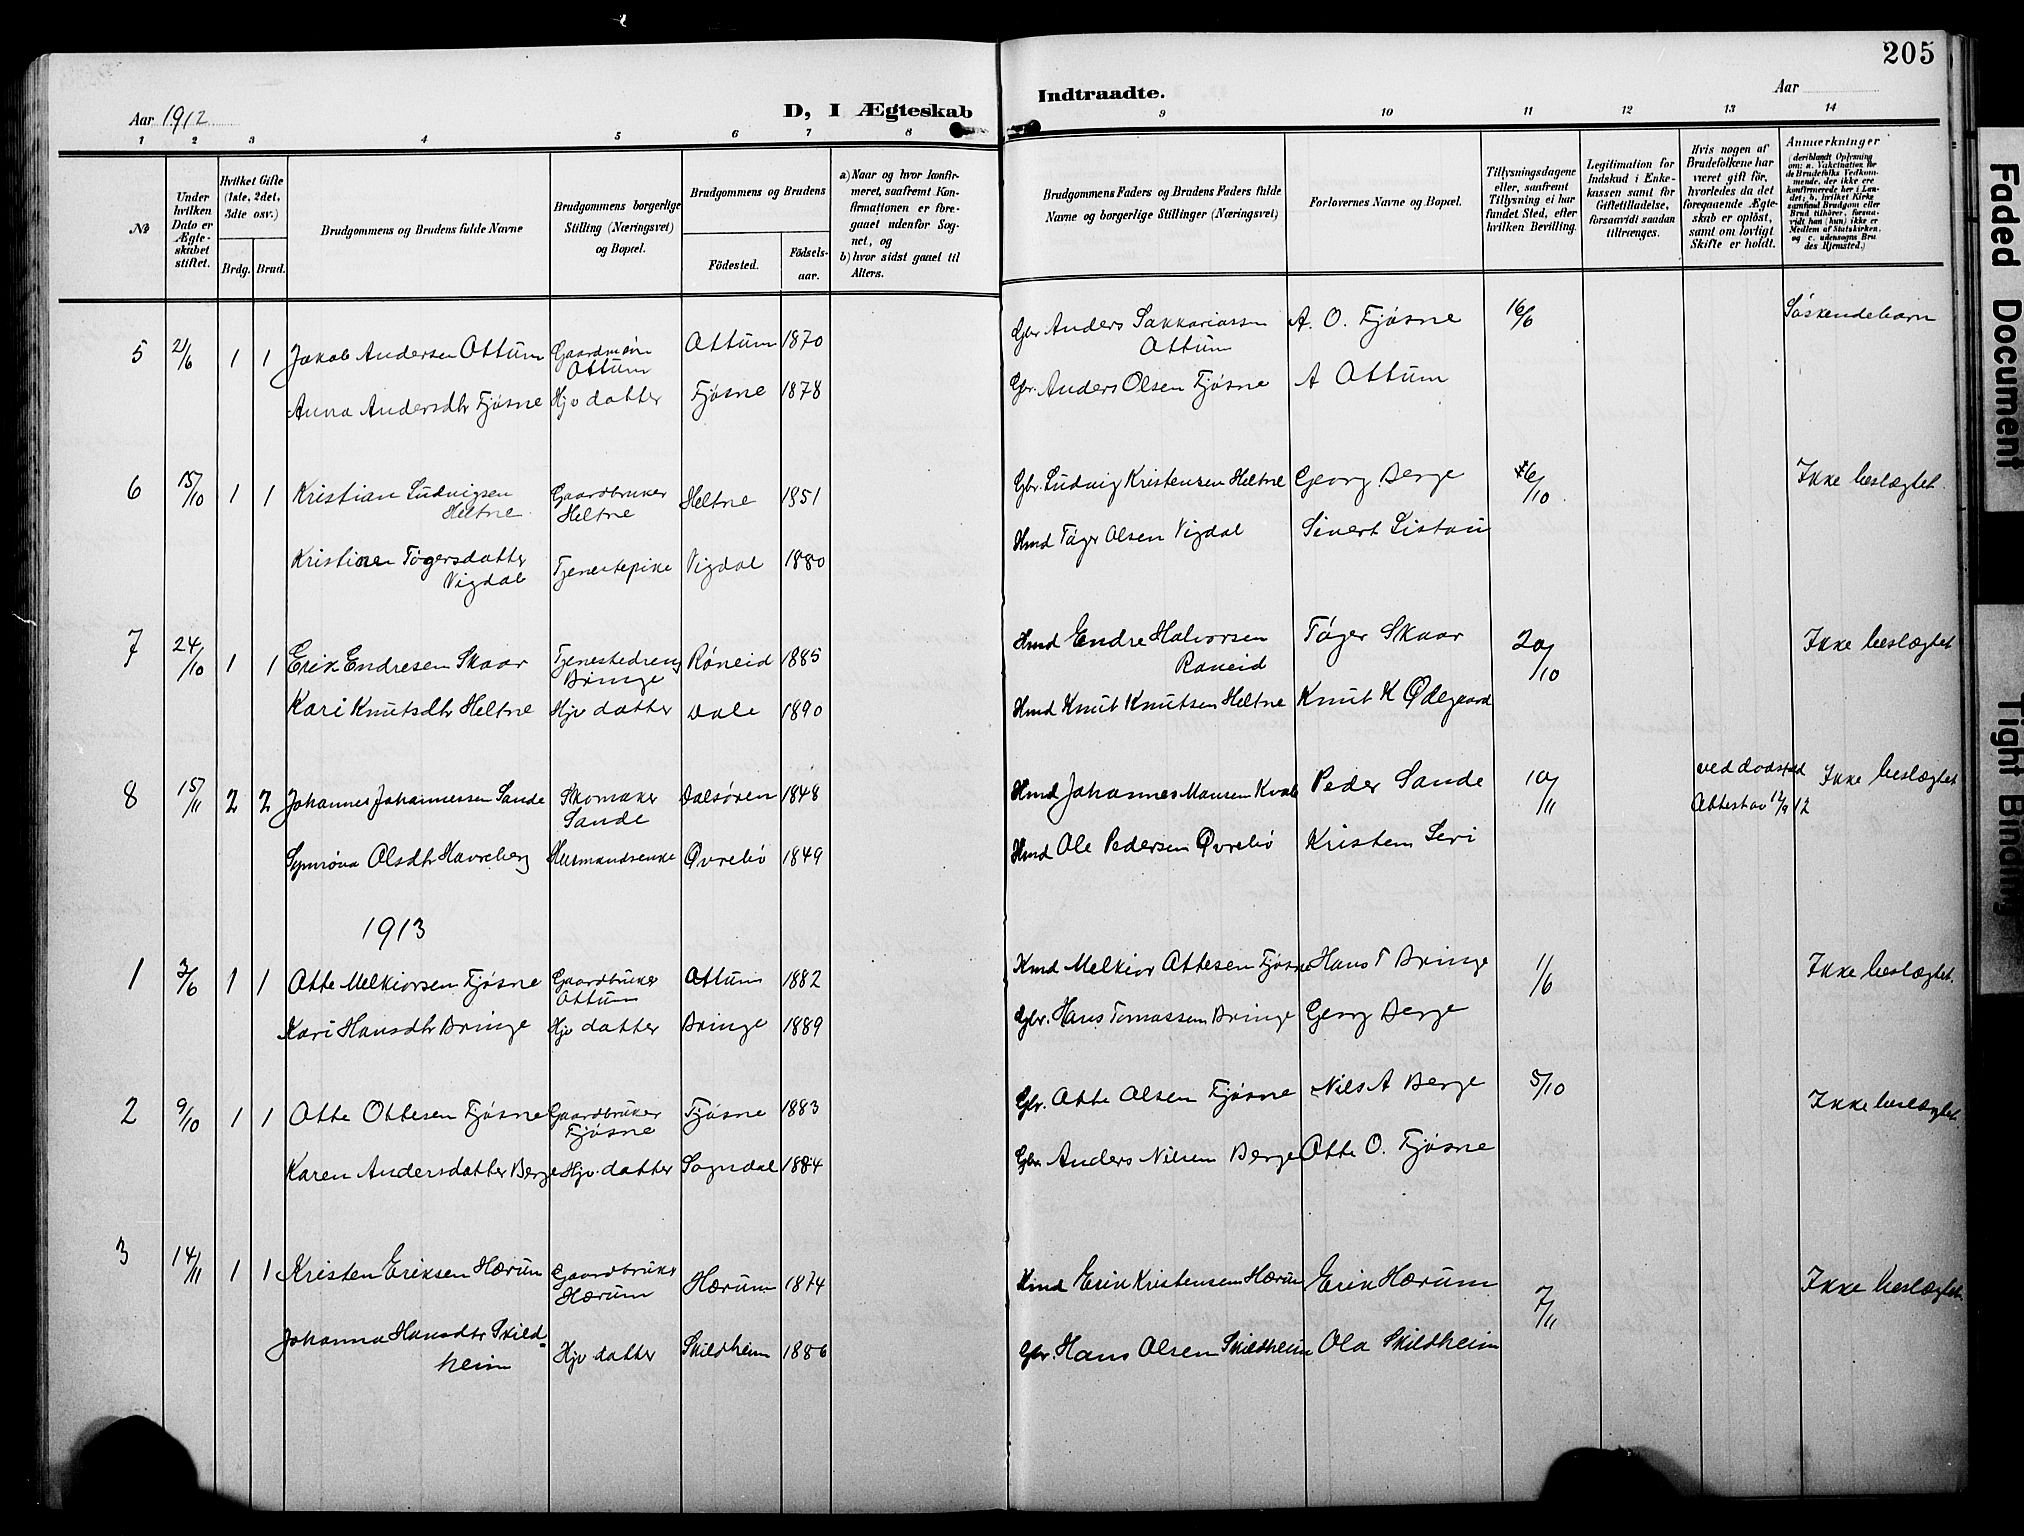 205
Aar 1912
D, I Ægteskab
Indtraadte.
Aar
1 2 3 4 5 6 7 8 9 10 11 12 13 14
No
Under hvilken Dato er Ægteskabet stiftet.
Hvilket Gifte (1ste, 2det, 3dte osv.)
Brdg. Brud.
Brudgommens og Brudens fulde Navne
Brudgommens borgerlige Stilling (Næringsvei) og Bopæl.
Brudgommens og Brudens
Födested.
Födselsaar.
a) Naar og hvor konfirmeret, saafremt Konfirmationen er foregaaet udenfor Sognet, og
b) hvor sidst gaaet til Alters.
Brudgommens Faders og Brudens Faders fulde Navne og borgerlige Stillinger (Næringsvei)
Forlovernes Navne og Bopæl.
Tillysningsdagene eller, saafremt Tillysning ei har fundet Sted, efter hvilken Bevilling.
Legitimation for Indskud i Enkekassen samt for Giftetilladelse, forsaavidt saadan tiltrænges.
Hvis nogen af Brudefolkene har været gift för, hvorledes da det foregaaende Ægteskab er oplöst, samt om lovligt Skifte er holdt.
Anmærkninger
(deriblandt Oplysning om: a. Vakcination for de Brudefolks Vedkommende, der ikke ere konfirmerede her i Landet; b. hvilket Kirkesamfund Brudgom eller Brud tilhörer, forsaavidt han (hun) ikke er Medlem af Statskirken, og c. udensogns Brudes Hjemsted.)
5 21/6 1 1 Jakob Andersen Ottum Gaardmann Ottum Ottum 1870 Gbr Anders Sakkariassen Ottum A. O. Fjøsne 16/6 Søskendebarn
Anna Andersdtr Fjøsne Hjv datter Fjøsne 1878 Gbr. Anders Olsen Fjøsne A Ottum
6 15/10 1 1 Kristian Ludvigsen Heltne Gaardbruker Heltne Heltne 1851 Gbr. Ludvig Kristensen Heltne Georg Berge 6/10 Ikke beslægtet.
Kristine Tøgersdatter Vigdal Tjenestepike Vigdal 1880 Hmd Tøger Olsen Vigdal Sivert Listou
7 24/10 1 1 Erik Endresen Skaar Tjenestedreng Bringe Røneid 1885 Hmd Endre Halvorsen Røneid Tøger Skaar 20/10 Ikke beslægtet
Kari Knutsdtr Heltne Hjv datter Dale 1890 Hmd Knut Knutsen Heltne Knut K Ødegaard
8 15/11 2 2 Johannes Johannessen Sande Skomaker Sande Dalsøren 1848 Hmd Johannes Monsen Kvale Peder Sande 10/11 ved dødsfald Attest av 12/9 12 Ikke beslægtet
Synnøva Olsdtr Havreberg Husmandsenke Øvrebø 1849 Hmd Ole Pedersen Øvrebø Kristen Leri
1913
1 3/6 1 1 Otte Melkiorsen Fjøsne Gaardbruker Ottum Ottum 1882 Kmd Melkior Ottesen Fjøsne Hans T Bringe 1/6 Ikke beslægtet.
Kari Hansdtr Bringe Hjv datter Bringe 1889 Gbr. Hans Tomassen Bringe Georg Berge
2 9/10 1 1 Otte Ottesen Fjøsne Gaardbruker Fjøsne Fjøsne 1883 Gbr. Otte Olsen Fjøsne Nils A Berge 5/10 Ikke beslægtet.
Karen Andersdatter Berge Hjv. datter Sogndal 1884 Gbr Anders Nilsen Berge Otte O. Fjøsne
3 14/11 1 1 Kristen Eriksen Hærum Gaardbruker Hærum Hærum 1874 Kmd Erik Kristensen Hærum Erik Hærum 7/11 Ikke beslægtet.
Johanna Hansdtr Skildheim Hjv datter Skildheim 1886 Gbr. Hans Olsen Skildheim Ola Skildheim
Faded Document
Tight Binding